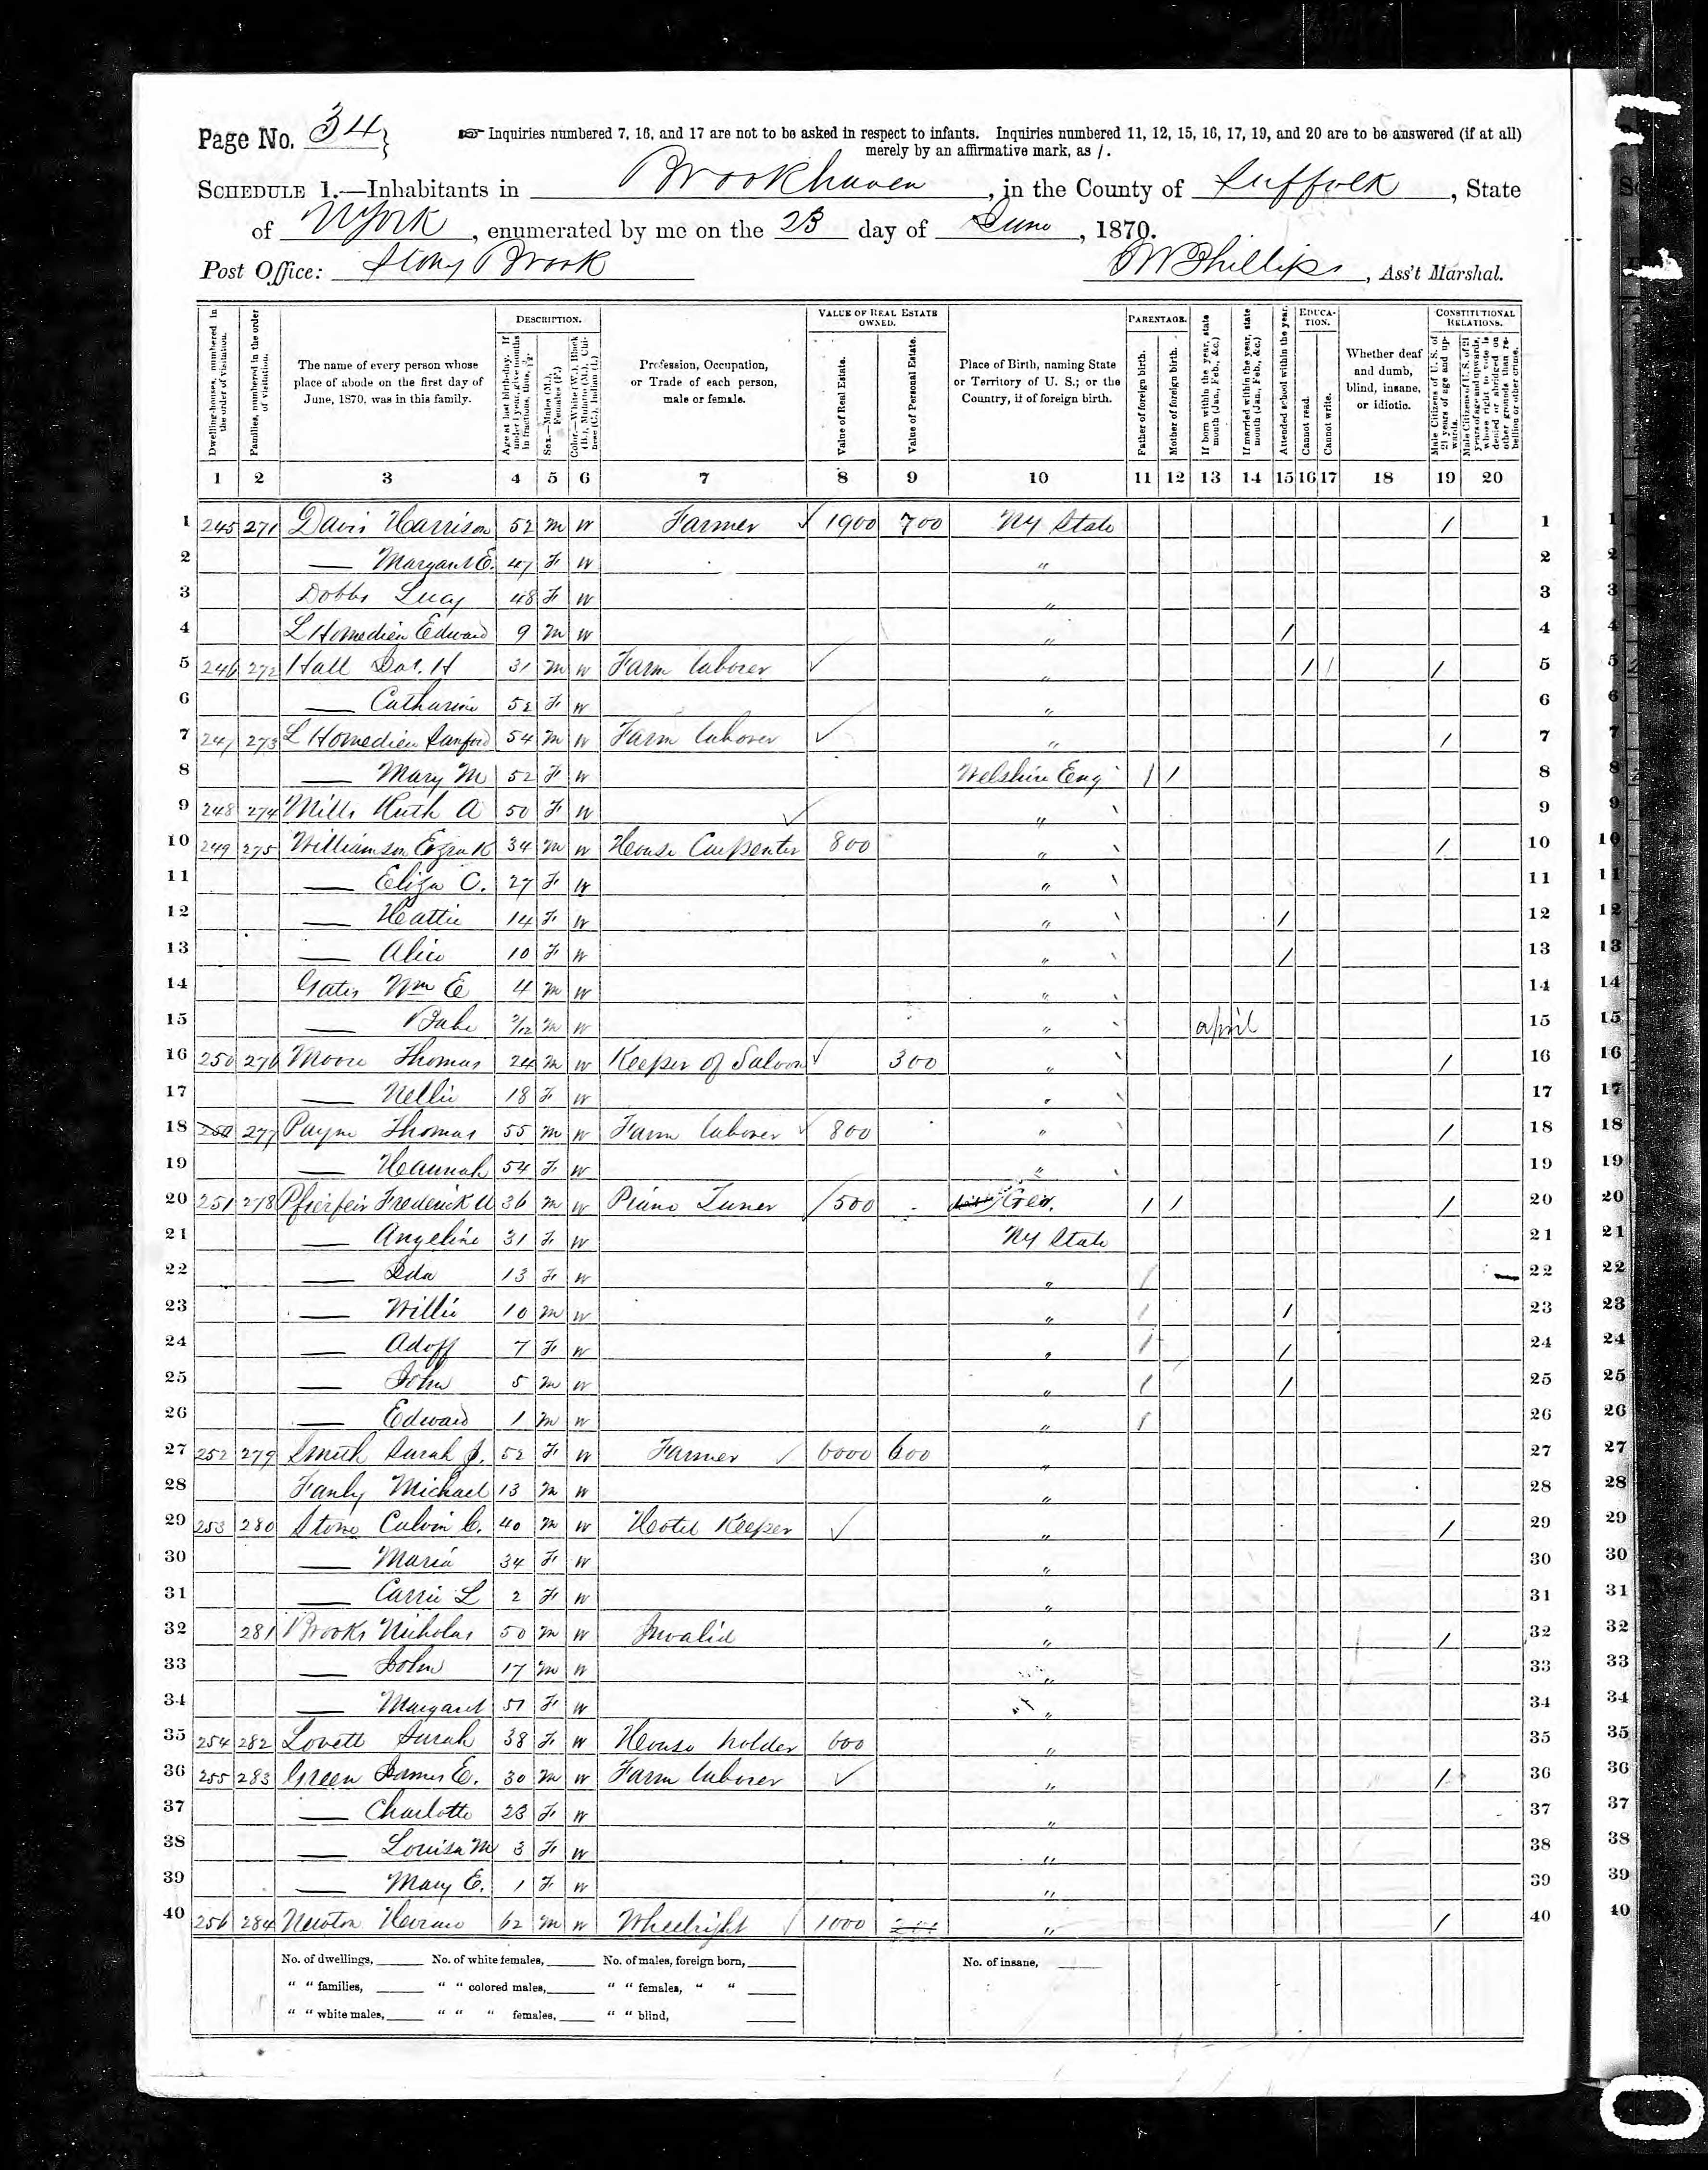 Page No. 34
☞ Inquiries numbered 7, 16, and 17 are not to be asked in respect to infants. Inquiries numbered 11, 12, 15, 16, 17, 19, and 20 are to be answered (if at all)
merely by an affirmative mark, as /.
SCHEDULE 1.—Inhabitants in Brookhaven, in the County of Suffolk, State
of N York, enumerated by me on the 23 day of June, 1870.
Post Office: Stony Brook Phillips, Ass't Marshal.
Dwelling-houses, numbered in the order of visitation.
Families, numbered in the order of visitation.
The name of every person whose place of abode on the first day of June, 1870, was in this family.
DESCRIPTION.
Age at last birth-day. If under 1 year, give months in fractions, thus, 1/12
Sex.—Males (M.), Females (F.)
Color.—White (W.), Black (B.), Mulatto (M.), Chinese (C.), Indian (I.)
Profession, Occupation, or Trade of each person, male or female.
VALUE OF REAL ESTATE OWNED.
Value of Real Estate.
Value of Personal Estate.
Place of Birth, naming State or Territory of U. S.; or the Country, if of foreign birth.
PARENTAGE.
Father of foreign birth.
Mother of foreign birth.
If born within the year, state month (Jan., Feb., &c.)
If married within the year, state month (Jan., Feb., &c.)
Attended school within the year.
EDUCATION.
Cannot read.
Cannot write.
Whether deaf and dumb, blind, insane, or idiotic.
CONSTITUTIONAL RELATIONS.
Male Citizens of U. S. of 21 years of age and upwards.
Male Citizens of U. S. of 21 years of age and upwards, whose right to vote is denied or abridged on other grounds than rebellion or other crime.
1 2 3 4 5 6 7 8 9 10 11 12 13 14 15 16 17 18 19 20
1 245 271 Davis Harrison 52 M W Farmer ✓ 1900 700 NY State / 1
2 — Margaret E. 47 F W " 2
3 Dobbs Lucy 48 F W " 3
4 L Homedieu Edward 9 M W " / 4
5 246 272 Hall H 31 M W Farm laborer ✓ " / / / 5
6 — Catharine 52 F W " 6
7 247 273 L Homedieu Sanford 54 M W Farm laborer ✓ " / 7
8 — Mary M 52 F W Welshire Eng / / 8
9 248 274 Mills Ruth A 50 F W ✓ " \ 9
10 249 275 Williamson Ezra K 34 M W House Carpenter 800 " \ / 10
11 — Eliza C. 27 F W " \ 11
12 — Hattie 14 F W " \ / 12
13 — Alice 10 F W " \ / 13
14 Gates Wm E 4 M W " \ 14
15 — Babe 2/12 M W " \ april 15
16 250 276 Moore Thomas 24 M W Keeper of Saloon ✓ 300 " \ / 16
17 — Nellie 18 F W " \ 17
18 250 277 Payne Thomas 55 M W Farm laborer ✓ 800 " \ / 18
19 — Hannah 54 F W " \ 19
20 251 278 Frederick A 36 M W Piano Tuner / 500 Ger. / / / 20
21 — Angeline 31 F W NY State 21
22 — Ida 13 F W " / 22
23 — Willie 10 M W " / / 23
24 — Adoff 7 F W " / / 24
25 — John 5 M W " / / 25
26 — Edward 1 M W " / 26
27 252 279 Smith Sarah J. 52 F W Farmer ✓ 6000 600 " 27
28 Fanly Michael 13 M W " 28
29 253 280 Stone Calvin C. 40 M W Hotel Keeper ✓ " / 29
30 — Maria 34 F W " 30
31 — Carrie L 2 F W " 31
32 281 Brooks Nicholas 50 M W Invalid " / 32
33 — John 17 M W " 33
34 — Margaret 51 F W " 34
35 254 282 Lovett Sarah 38 F W House holder 600 " 35
36 255 283 Green James E. 30 M W Farm laborer ✓ " / 36
37 — Charlotte 23 F W " 37
38 — Louisa M 3 F W " 38
39 — Mary E. 1 F W " 39
40 256 284 Newton Hiram 62 M W Wheelright ✓ 1000 " / 40
No. of dwellings, No. of white females, No. of males, foreign born, No. of insane,
" " families, " " colored males, " " females, " "
" " white males, " " " females, " " blind,